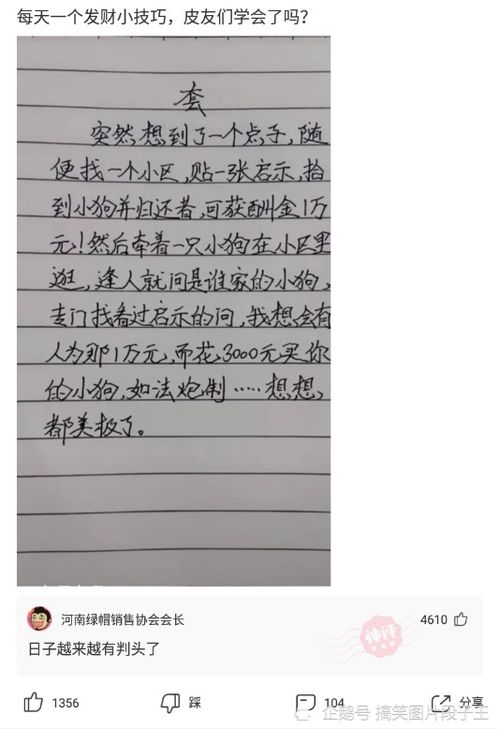 每天一个发财小技巧，皮友们学会了吗？
套
突然想到了一个点子，随
便找一个小区，贴一张启示，拾
到小狗并归还者，可获酬金1万
元！然后牵着一只小狗在小区里
逛，逢人就问是谁家的小狗，
专门找看过启示的问，我想会有
人为那1万元，而花3000元买你
的小狗，如法炮制……想想，
都美极了。
河南绿帽销售协会会长
4610
神评
日子越来越有判头了
1356
踩
104
分享
企鹅号 搞笑图片段子王